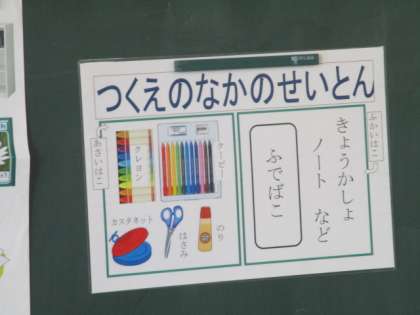 つくえのなかのせいとん
ふかいはこ
きょうかしょ
ノート など
ふでばこ
あさいはこ
クーピー
クレヨン
カスタネット
はさみ
のり